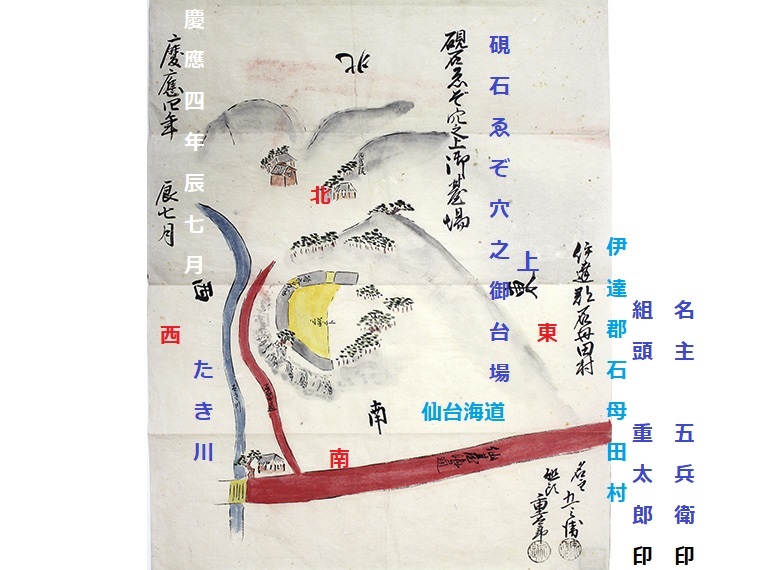 名主 五兵衛 印
組頭 重太郎 印
伊達郡石母田村
伊達郡石母田村
名主 五兵衛
組頭 重太郎
上
東
東
硯石ゑぞ穴之御台場
硯石ゑぞ穴之上御台場
北
北
仙台海道
仙台海道
南
南
たき川
西
西
慶應四年辰七月
慶應四年 辰七月